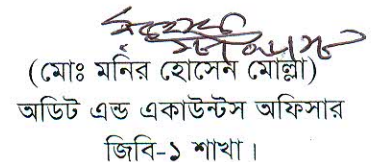 (মোঃ মনির হোসেন মোল্লা)
অডিট এন্ড একাউন্টস অফিসার
জিবি-১ শাখা।